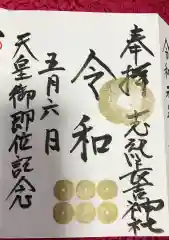 奉拝
神社
令和
五月六日
天皇御即位記念